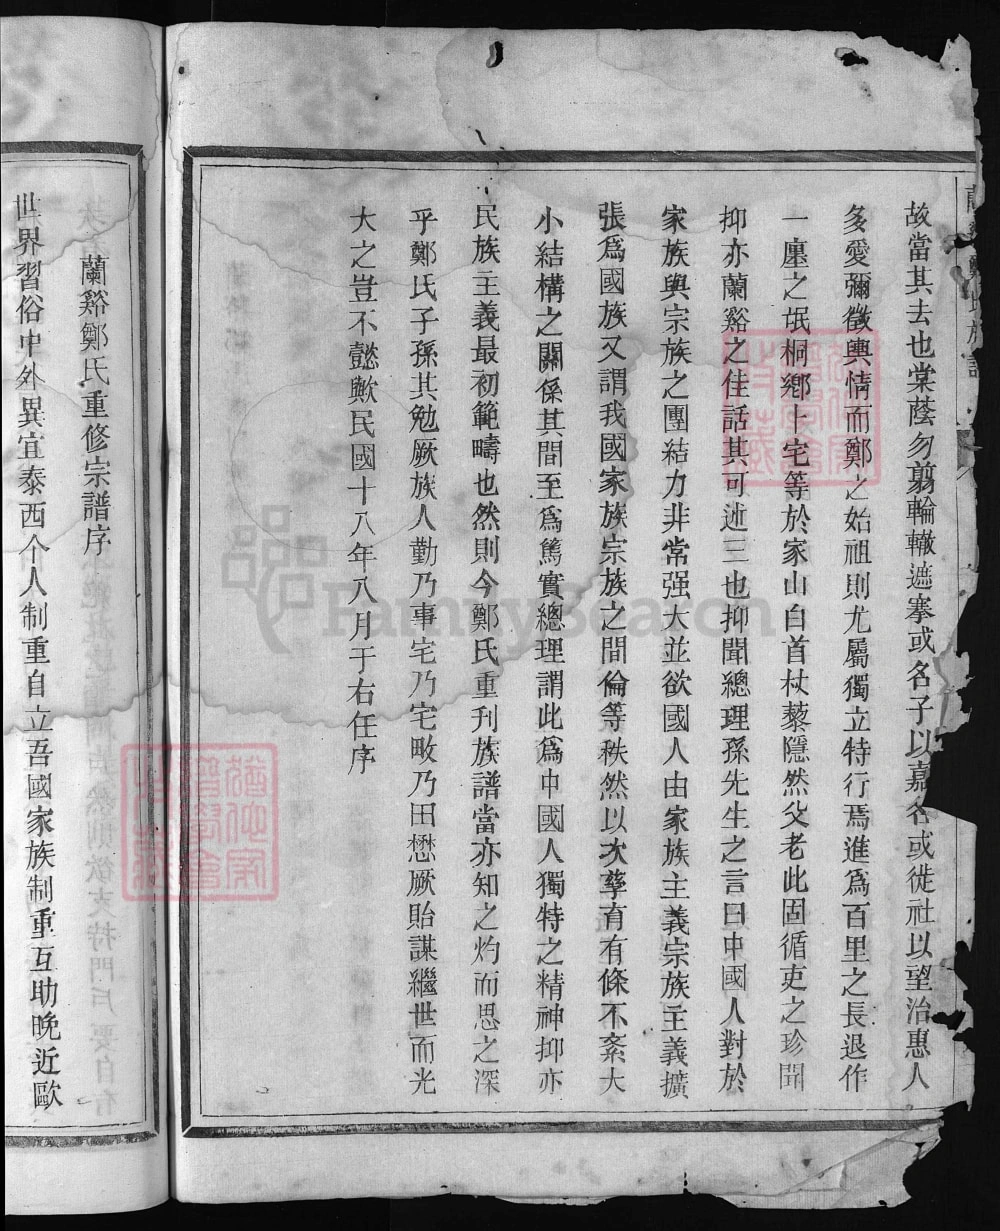 故當其去也棠蔭勿翦輪轍遮塞或名子以嘉名或徙社以望治惠人
多愛彌徵輿情而鄭之始祖則尤屬獨立特行焉進爲百里之長退作
一廛之氓桐鄉土宅等於家山白首杖藜隱然父老此固循吏之珍聞
抑亦蘭谿之佳話其可述三也抑聞總理孫先生之言曰中國人對於
家族與宗族之團結力非常强大並欲國人由家族主義宗族主義擴
張爲國族又謂我國家族宗族之間倫等秩然以次孳育有條不紊大
小結構之關係其間至爲篤實總理謂此爲中國人獨特之精神抑亦
民族主義最初範疇也然則今鄭氏重刊族譜當亦知之灼而思之深
乎鄭氏子孫其勉厥族人勤乃事宅乃宅畋乃田懋厥貽謀繼世而光
大之豈不懿歟民國十八年八月于右任序
蘭谿鄭氏重修宗譜序
世界習俗中外異宜泰西个人制重自立吾國家族制重互助晚近歐
FamilySearch